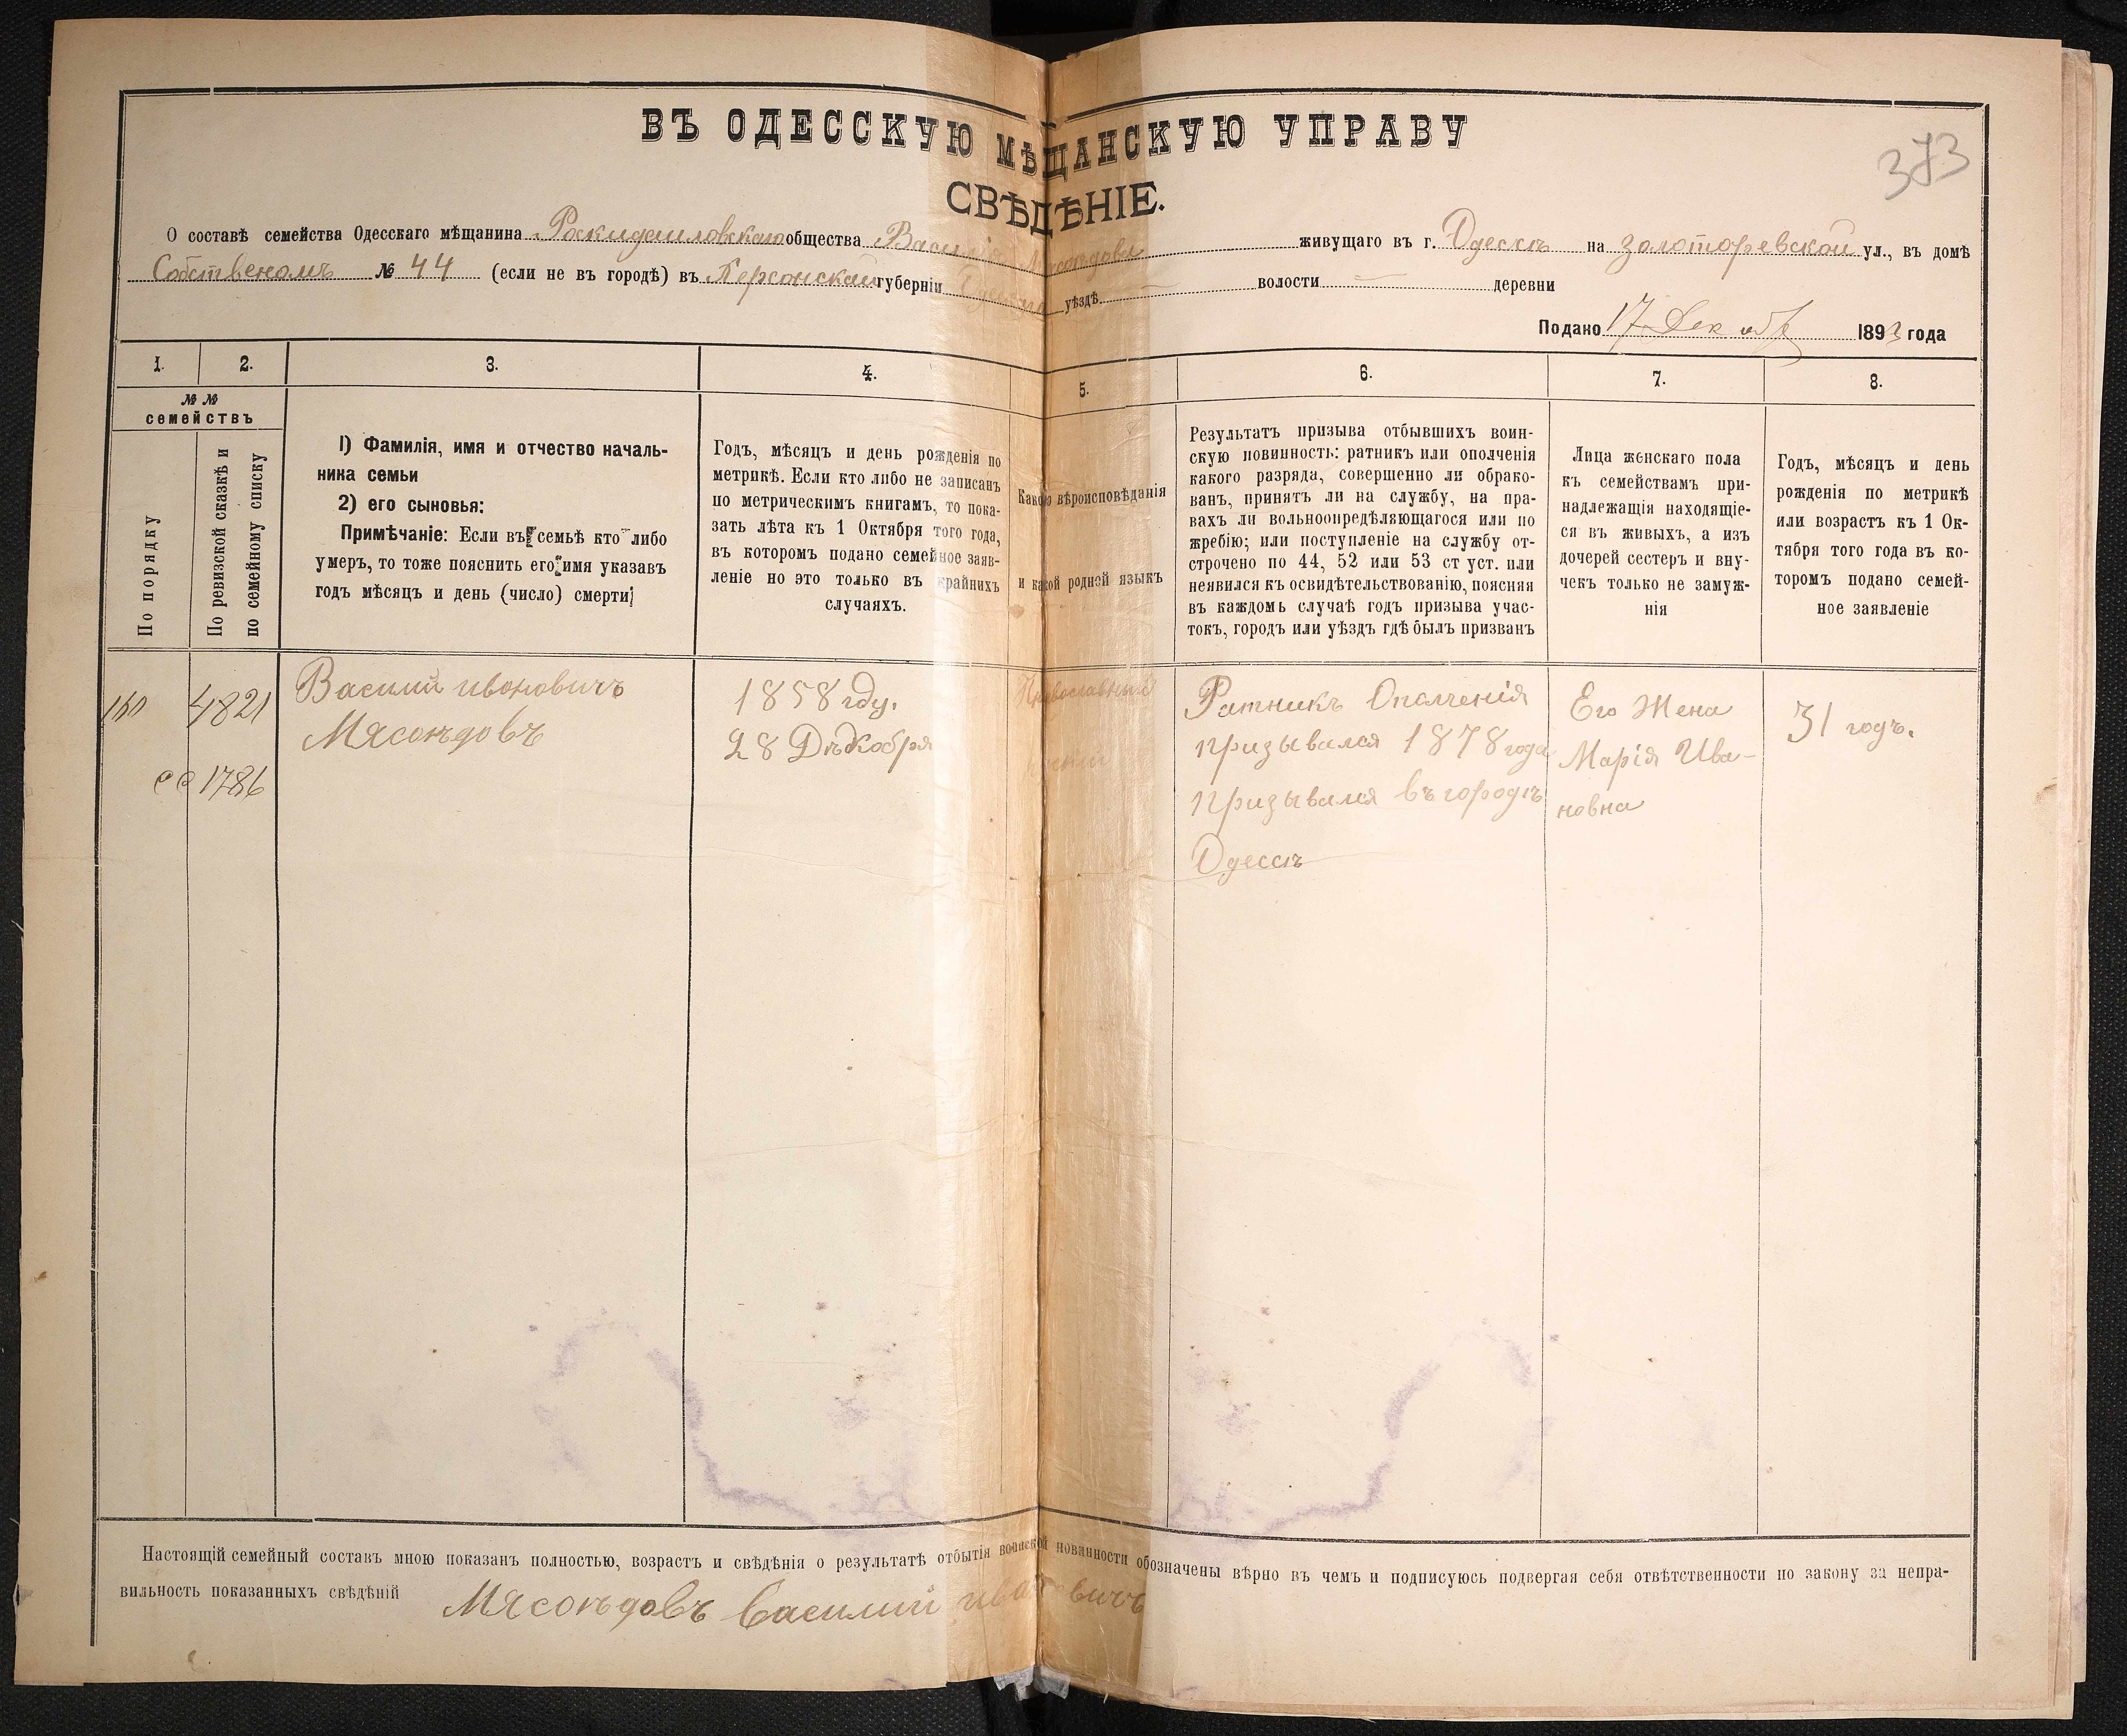 ВЪ ОДЕССКУЮ МѢЩАНСКУЮ УПРАВУ
373
СВѢДѢНІЕ.
О составѣ семейства Одесскаго мѣщанина Роскидаиловскаго общества Василія Мясоѣдова живущаго въ г. Одескѣ на золоторевской ул., въ домѣ
Собственомъ № 44 (если не въ городѣ) въ Херсонской губерніи уѣздѣ волости деревни
Подано 17 Декабр 1893 года
1. 2. 3. 4. 5. 6. 7. 8.
№ № семействъ
По порядку
По ревизской сказкѣ и
по семейному списку
1) Фамилія, имя и отчество началь-
ника семьи
2) его сыновья:
Примѣчаніе: Если въ семьѣ кто либо
умеръ, то тоже пояснить его имя указавъ
годъ мѣсяцъ и день (число) смерти
Годъ, мѣсяцъ и день рожденія по
метрикѣ. Если кто либо не записанъ
по метрическимъ книгамъ, то пока-
зать лѣта къ 1 Октября того года,
въ которомъ подано семейное заяв-
леніе но это только въ крайнихъ
случаяхъ.
Какою вѣроисповѣданія
и какой родной языкъ
Результатъ призыва отбывшихъ воин-
скую повинность: ратникъ или ополченія
какого разряда, совершенно ли обрако-
ванъ, принятъ ли на службу, на пра-
вахъ ли вольноопредѣляющагося или по
жребію; или поступленіе на службу от-
строчено по 44, 52 или 53 ст уст. или
неявился къ освидѣтельствованію, поясняя
въ каждомь случаѣ годъ призыва учас-
токъ, городъ или уѣздъ гдѣ былъ призванъ
Лица женскаго пола
къ семействамъ при-
надлежащія находящіе-
ся въ живыхъ, а изъ
дочерей сестеръ и вну-
чекъ только не замуж-
нія
Годъ, мѣсяцъ и день
рожденія по метрикѣ
или возрастъ къ 1 Ок-
тября того года въ ко-
торомъ подано семей-
ное заявленіе
4821
1786
Василий ивоновичъ
Мясоѣдовъ
1858 гду.
28 Дѣкобря
Православный
Ратникъ Ополченія
призывался 1878 года
призывался въ городѣ
Одессѣ
Его Жена
Марія Ива-
новна
31 годъ.
Настоящій семейный составъ мною показанъ полностью, возрастъ и свѣдѣнія о результатѣ отбытія воинской повинности обозначены вѣрно въ чемъ и подписуюсь подвергая себя отвѣтственности по закону за непра-
вильность показанныхъ свѣдѣній Мясоѣдовъ Василий ивановичъ